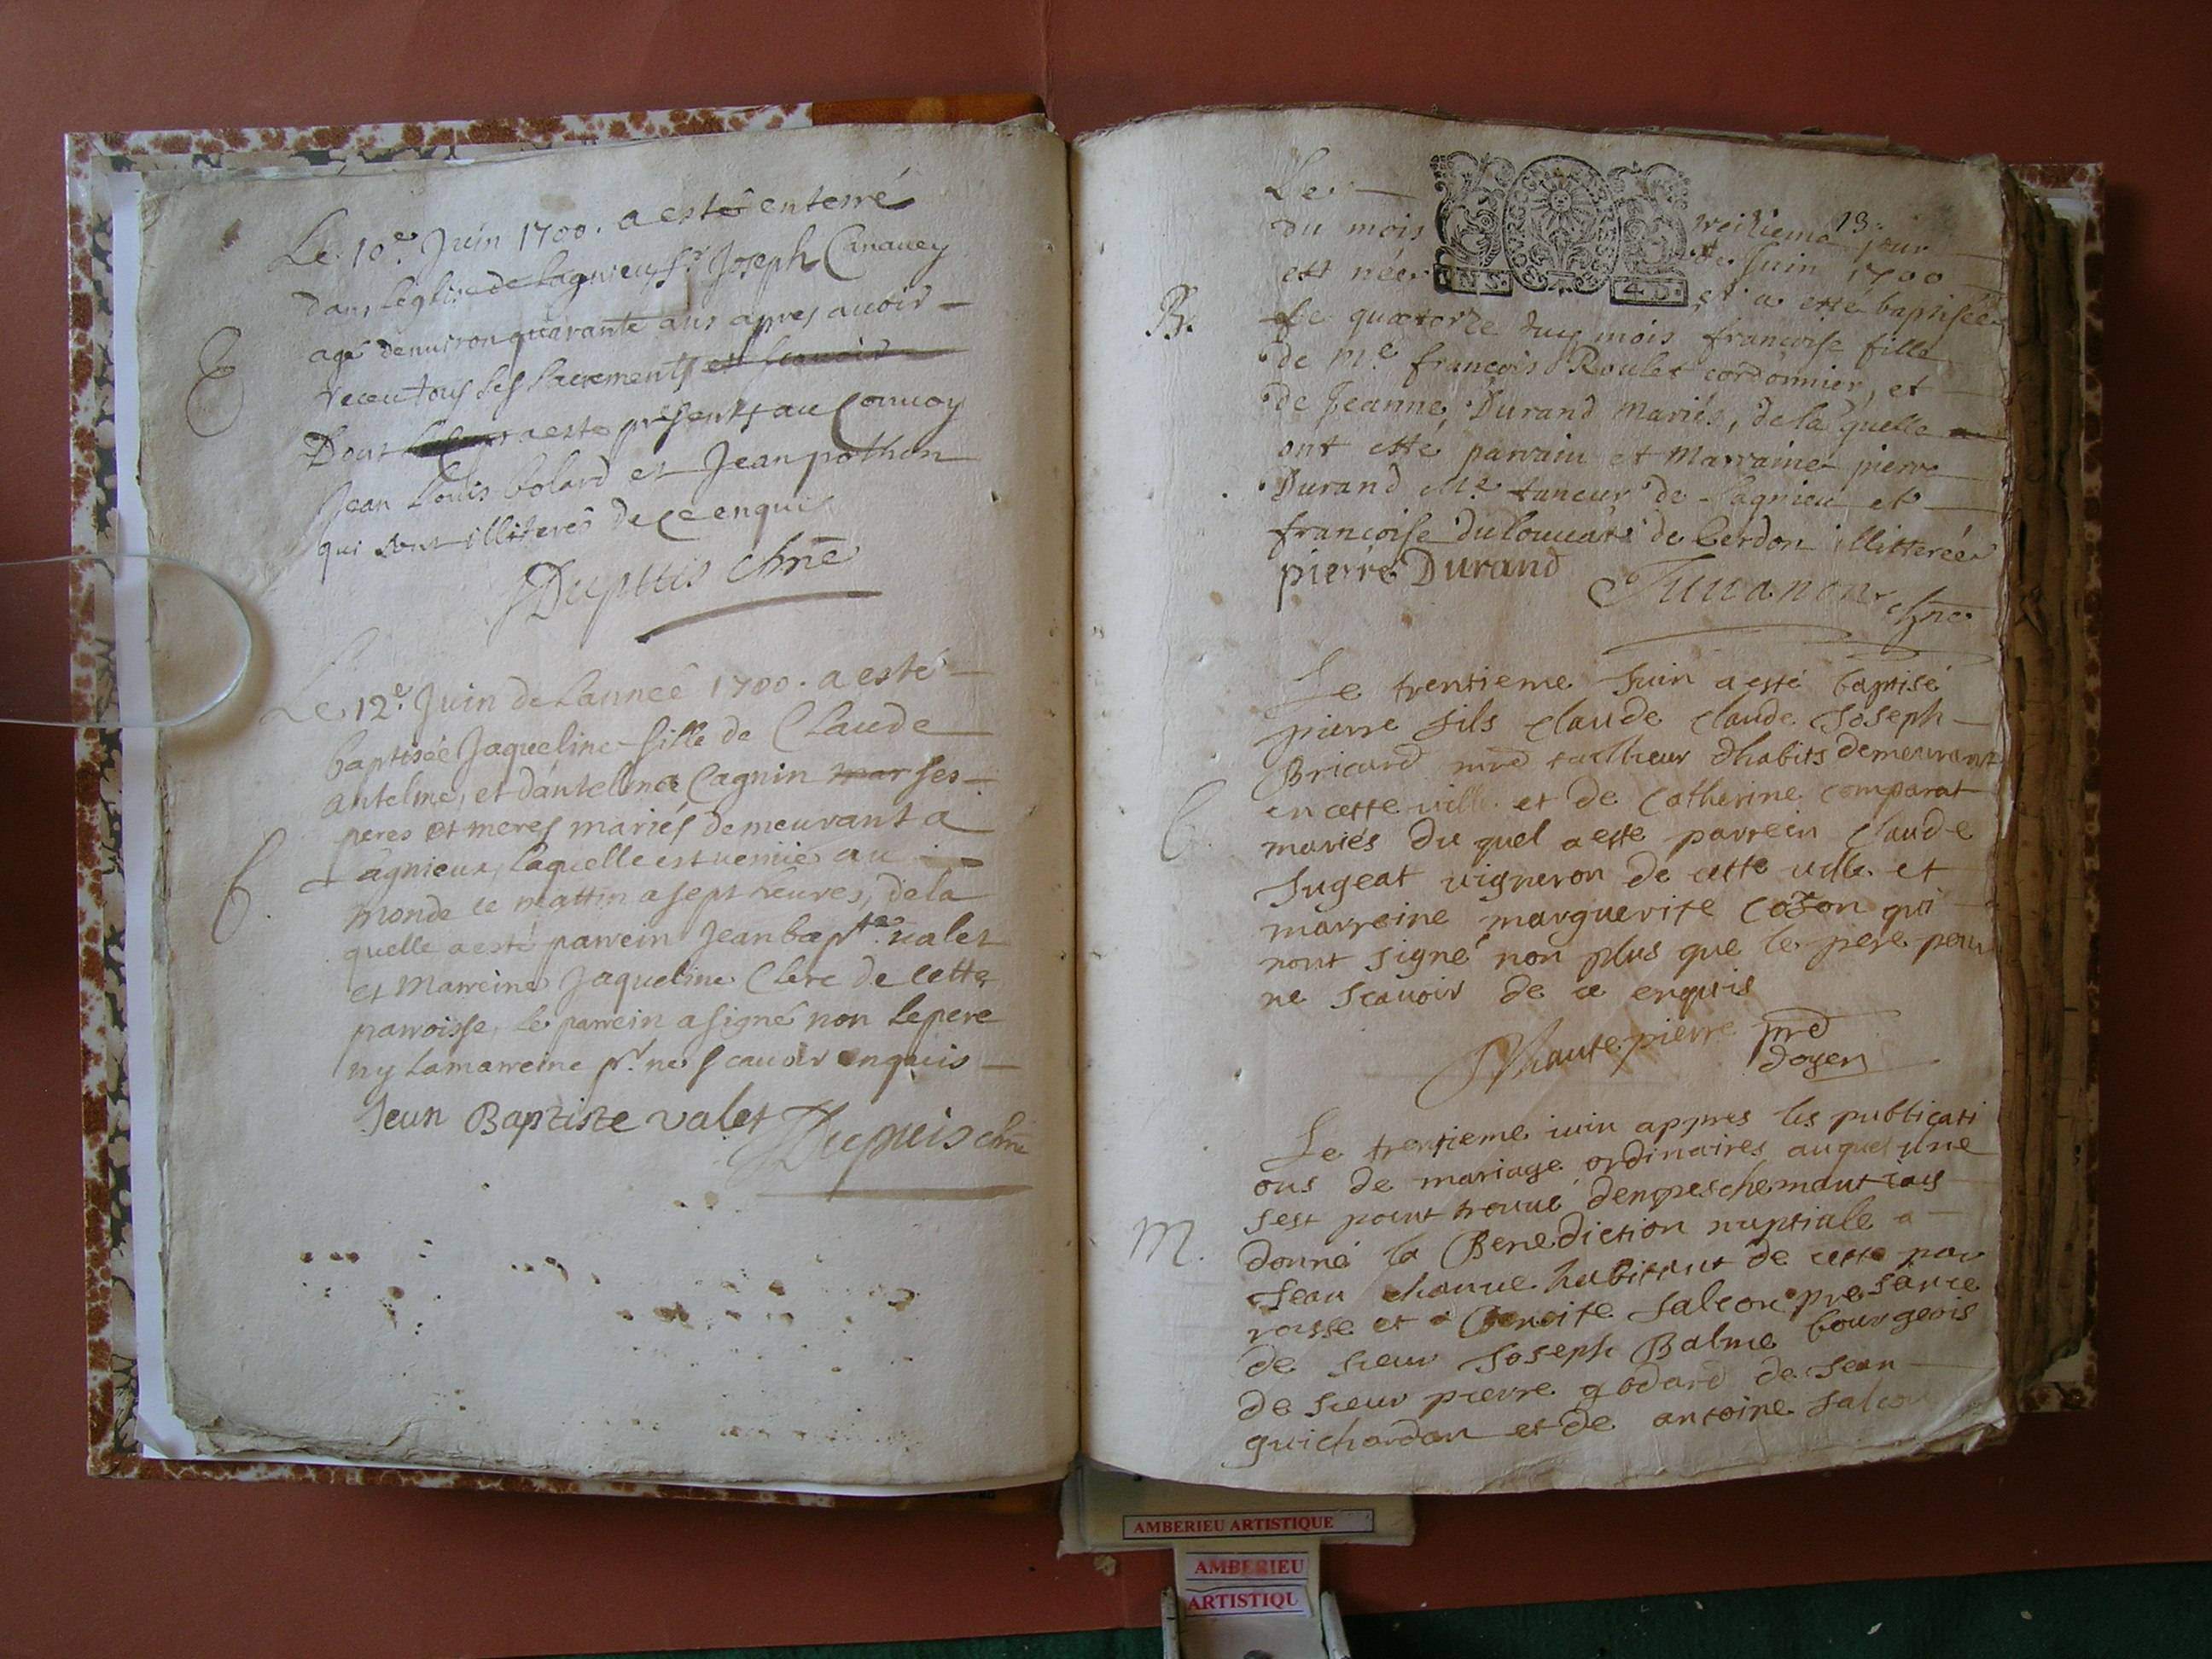 Le 10e. Juin 1700. a esté enterré
dans léglise de Lagnieu Sr. Joseph Canauey
E
agé denuiron quarante ans apres auoir
receu tous ses sacrements et
Dont a esté présents au Conuoy
Jean Louis bolard et Jean pothon
qui sont illiterés de ce enquis
Dupuis chne
Le 12e. Juin de Lanneé 1700. a esté
baptisée Jaqueline fille de Claude
antelme, et dantelma Cagnin mar ses
peres et meres mariés demeurant a
B.
Lagnieux, laquelle est venüe au
monde ce mattin a sept heures, de la
quelle a esté parrein Jean bapte. valet
et Marreine Jaqueline Clerc de cette
parroisse, le parrein a signé non le pere
ny la marreine pr. ne scauoir enquis
Jean Baptiste valet
Dupuis chne
Le
treiziême 13. jour
du mois
de Juin 1700
est née
et a esté baptisée
B.
le quatorze duy mois francoise fille
de Me. francois Roulet cordonnier, et
de Jeanne Durand Mariés, de la quelle
ont esté parrain et Marraine pierre
Durand Me. taneur de Lagnieu et
francoise de Cerdon illitterée
pierre Durand
Juuanon chne
Le trentieme Juin a esté baptisé
pierre fils claude claude Joseph
Bricard mre tailheur dhabits demeurant
en cette uille et de Catherine comparat
B.
mariés du quel a esté parrein claude
Jugeat uigneron de cette uille et
marreine marguerite cozon qui
nont signé non plus que le pere pour
ne scauoir de ce enquis
Dhautepierre pre
doyen
Le trentieme iuin appres les publicati
ons de mariage ordinaires auquel une
sest point trouué dempeschemant iay
M.
donné la Benediction nuptiale a
Jean chanue habitant de cette par
roisse et a Benoite falcon presance
de sieur Joseph Balme bourgeois
de sieur pierre godard de Jean
guichardon et de antoine falcon
AMBERIEU ARTISTIQUE
AMBERIEU
ARTISTIQU